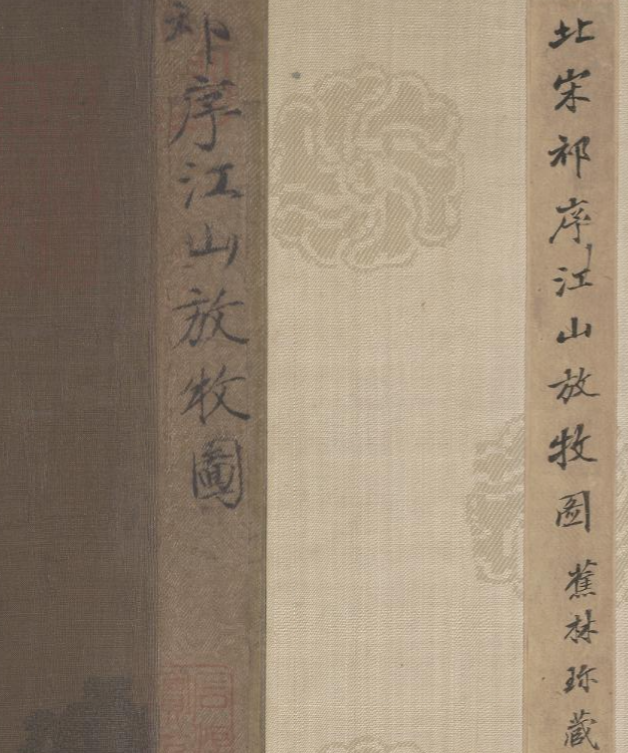 北宋祁序江山放牧圖 蕉林珎藏
祁序江山放牧圖